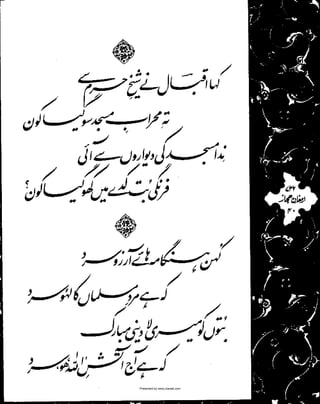 کہا اقبال نے شیخ حرم سے
تہ محراب مسجد سو گیا کون
ندا مسجد کی دیواروں سے آئی
فرنگی بت کدے میں کھو گیا کون؟
کہن ہنگامہ ہائے آرزو سرد
کہ ہے مرد مسلماں کا لہو سرد
بتوں کو میری لادینی مبارک
کہ ہے آج آتش اللہ ھو سرد
ارمغان حجاز
Presented by www.iqbalal.com